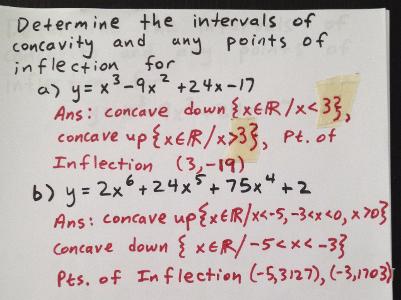 Determine the intervals of
concavity and any points of
inflection for
a) y = x³ - 9x² + 24x - 17
Ans: concave down {x∈ℝ/x<3},
concave up {x∈ℝ/x>3}, Pt. of
Inflection (3,-19)
b) y = 2x⁶ + 24x⁵ + 75x⁴ + 2
Ans: concave up {x∈ℝ/x<-5, -3<x<0, x>0}
concave down { x∈ℝ/ -5<x< -3}
Pts. of Inflection (-5,3127), (-3,1703)